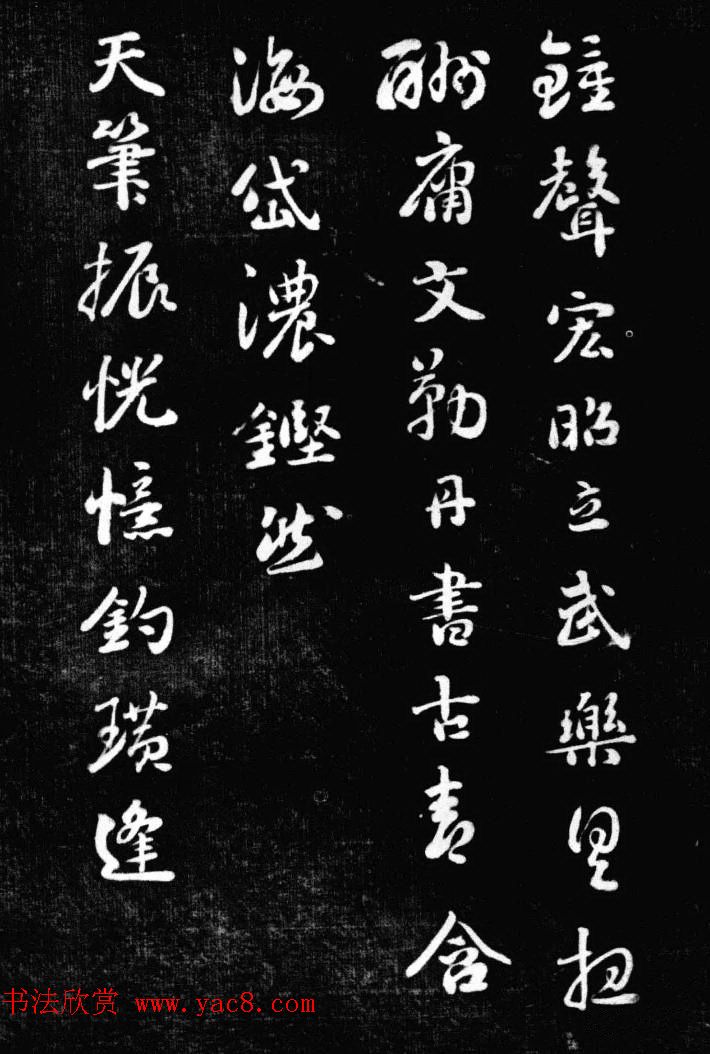 鐘聲宏昭立武樂具扭
酬庸文勒丹書古青含
海岱濃鏗然
天筆振恍憶鈞璜逢
书法欣赏 www.yac8.com